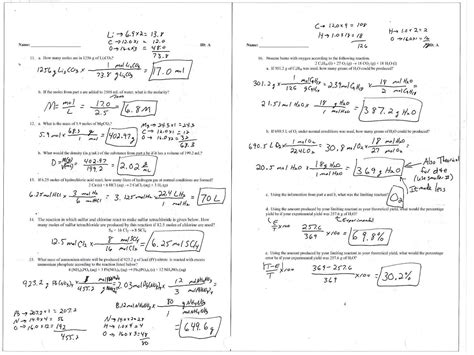 Li → 6.9×2= 13.8
C → 12.0×1 = 12.0
O → 16.0×3 = 48.0
73.8
Name: ID: A
11. a. How many moles are in 1256 g of Li₂CO₃?
1256g Li₂CO₃ × 1 mol Li₂CO₃ / 73.8 g Li₂CO₃ = 17.0 mol
b. If the moles from part a are added to 2500 mL of water, what is the molarity?
M = mol / L = 17.0 / 2.5 = 6.8 M
12. a. What is the mass of 5.9 moles of MgCO₃?
5.9 mol × 68.3 g / 1 mol = 402.97g
Mg → 24.3×1 = 24.3
C → 12.0×1 = 12
O → 16.0×2 = 32
68.3
b. What would the density (in g/mL) of the substance from part a be if it has a volume of 199.2 mL?
D = M(g) / V(mL) = 402.97 / 199.2 = 2.02 g/mL
13. If 6.25 moles of hydrochloric acid react, how many liters of hydrogen gas at normal conditions are formed?
6.25 mol HCl × 3 mol H₂ / 6 mol HCl = 3.125 mol H₂ × 22.4 L H₂ / 1 mol H₂ = 70 L
14. The reaction in which sulfur and chlorine react to make sulfur tetrachloride is given below. How many moles of sulfur tetrachloride are produced by this reaction if 82.5 moles of chlorine are used?
12.5 mol Cl₂ × 8 mol SCl₄ / 16 mol Cl₂ = 6.25 mol SCl₄
15. What mass of ammonium nitrate will be produced if 923.2 g of lead (IV) nitrate is reacted with excess ammonium phosphate according to the reaction listed below?
12 mol NH₄NO₃
8.12 mol NH₄NO₃ × 80 g NH₄NO₃ / 1 mol NH₄NO₃
649.6 g
Pb → 207.2×1 = 207.2
N → 14.0×4 = 56
O → 16.0×12 = 192
455.2
N → 14.0×2 = 28
H → 1.0×4 = 4
O → 16.0×3 = 48
80
C → 12.0×9 = 108
H → 1.0×18 = 18
126
H → 1.0×2 = 2
O → 16.0×1 = 16
18
Name: ID: A
16. Nonene burns with oxygen according to the following reaction
2 C₉H₁₈ (l) + 27 O₂ (g) → 18 CO₂ (g) + 18 H₂O (l)
a. If 301.2 g of C₉H₁₈ was used, how many grams of H₂O could be produced?
301.2 g × 1 mol C₉H₁₈ / 126 g C₉H₁₈ = 2.39 mol C₉H₁₈ × 18 mol H₂O / 2 mol C₉H₁₈
21.51 mol H₂O × 18 g H₂O / 1 mol H₂O = 387.2 g H₂O
b. If 690.5 L O₂ under normal conditions was used, how many grams of H₂O could be produced?
690.5 L O₂ × 1 mol O₂ / 22.4 L O₂ = 30.8 mol O₂ × 18 mol H₂O / 27 mol O₂
20.5 mol H₂O × 18 g H₂O / 1 mol H₂O = 369 g H₂O
Also Theoretical
for d + e
it made less
c. Using the information from part a and b, what was the limiting reactant?
O₂
d. Using the amount produced by your limiting reactant as your theoretical yield, what would the percentage yield be if your experimental yield was 257.6 g of H₂O?
E / T ×100
Experimental
257.6 / 369 ×100 = 69.8%
e. Using the amount produced by your limiting reactant as your theoretical yield, what would the percentage error be if your experimental yield was 257.6 g of H₂O?
|T-E| / T ×100
369-257.6 / 369 ×100 = 30.2%